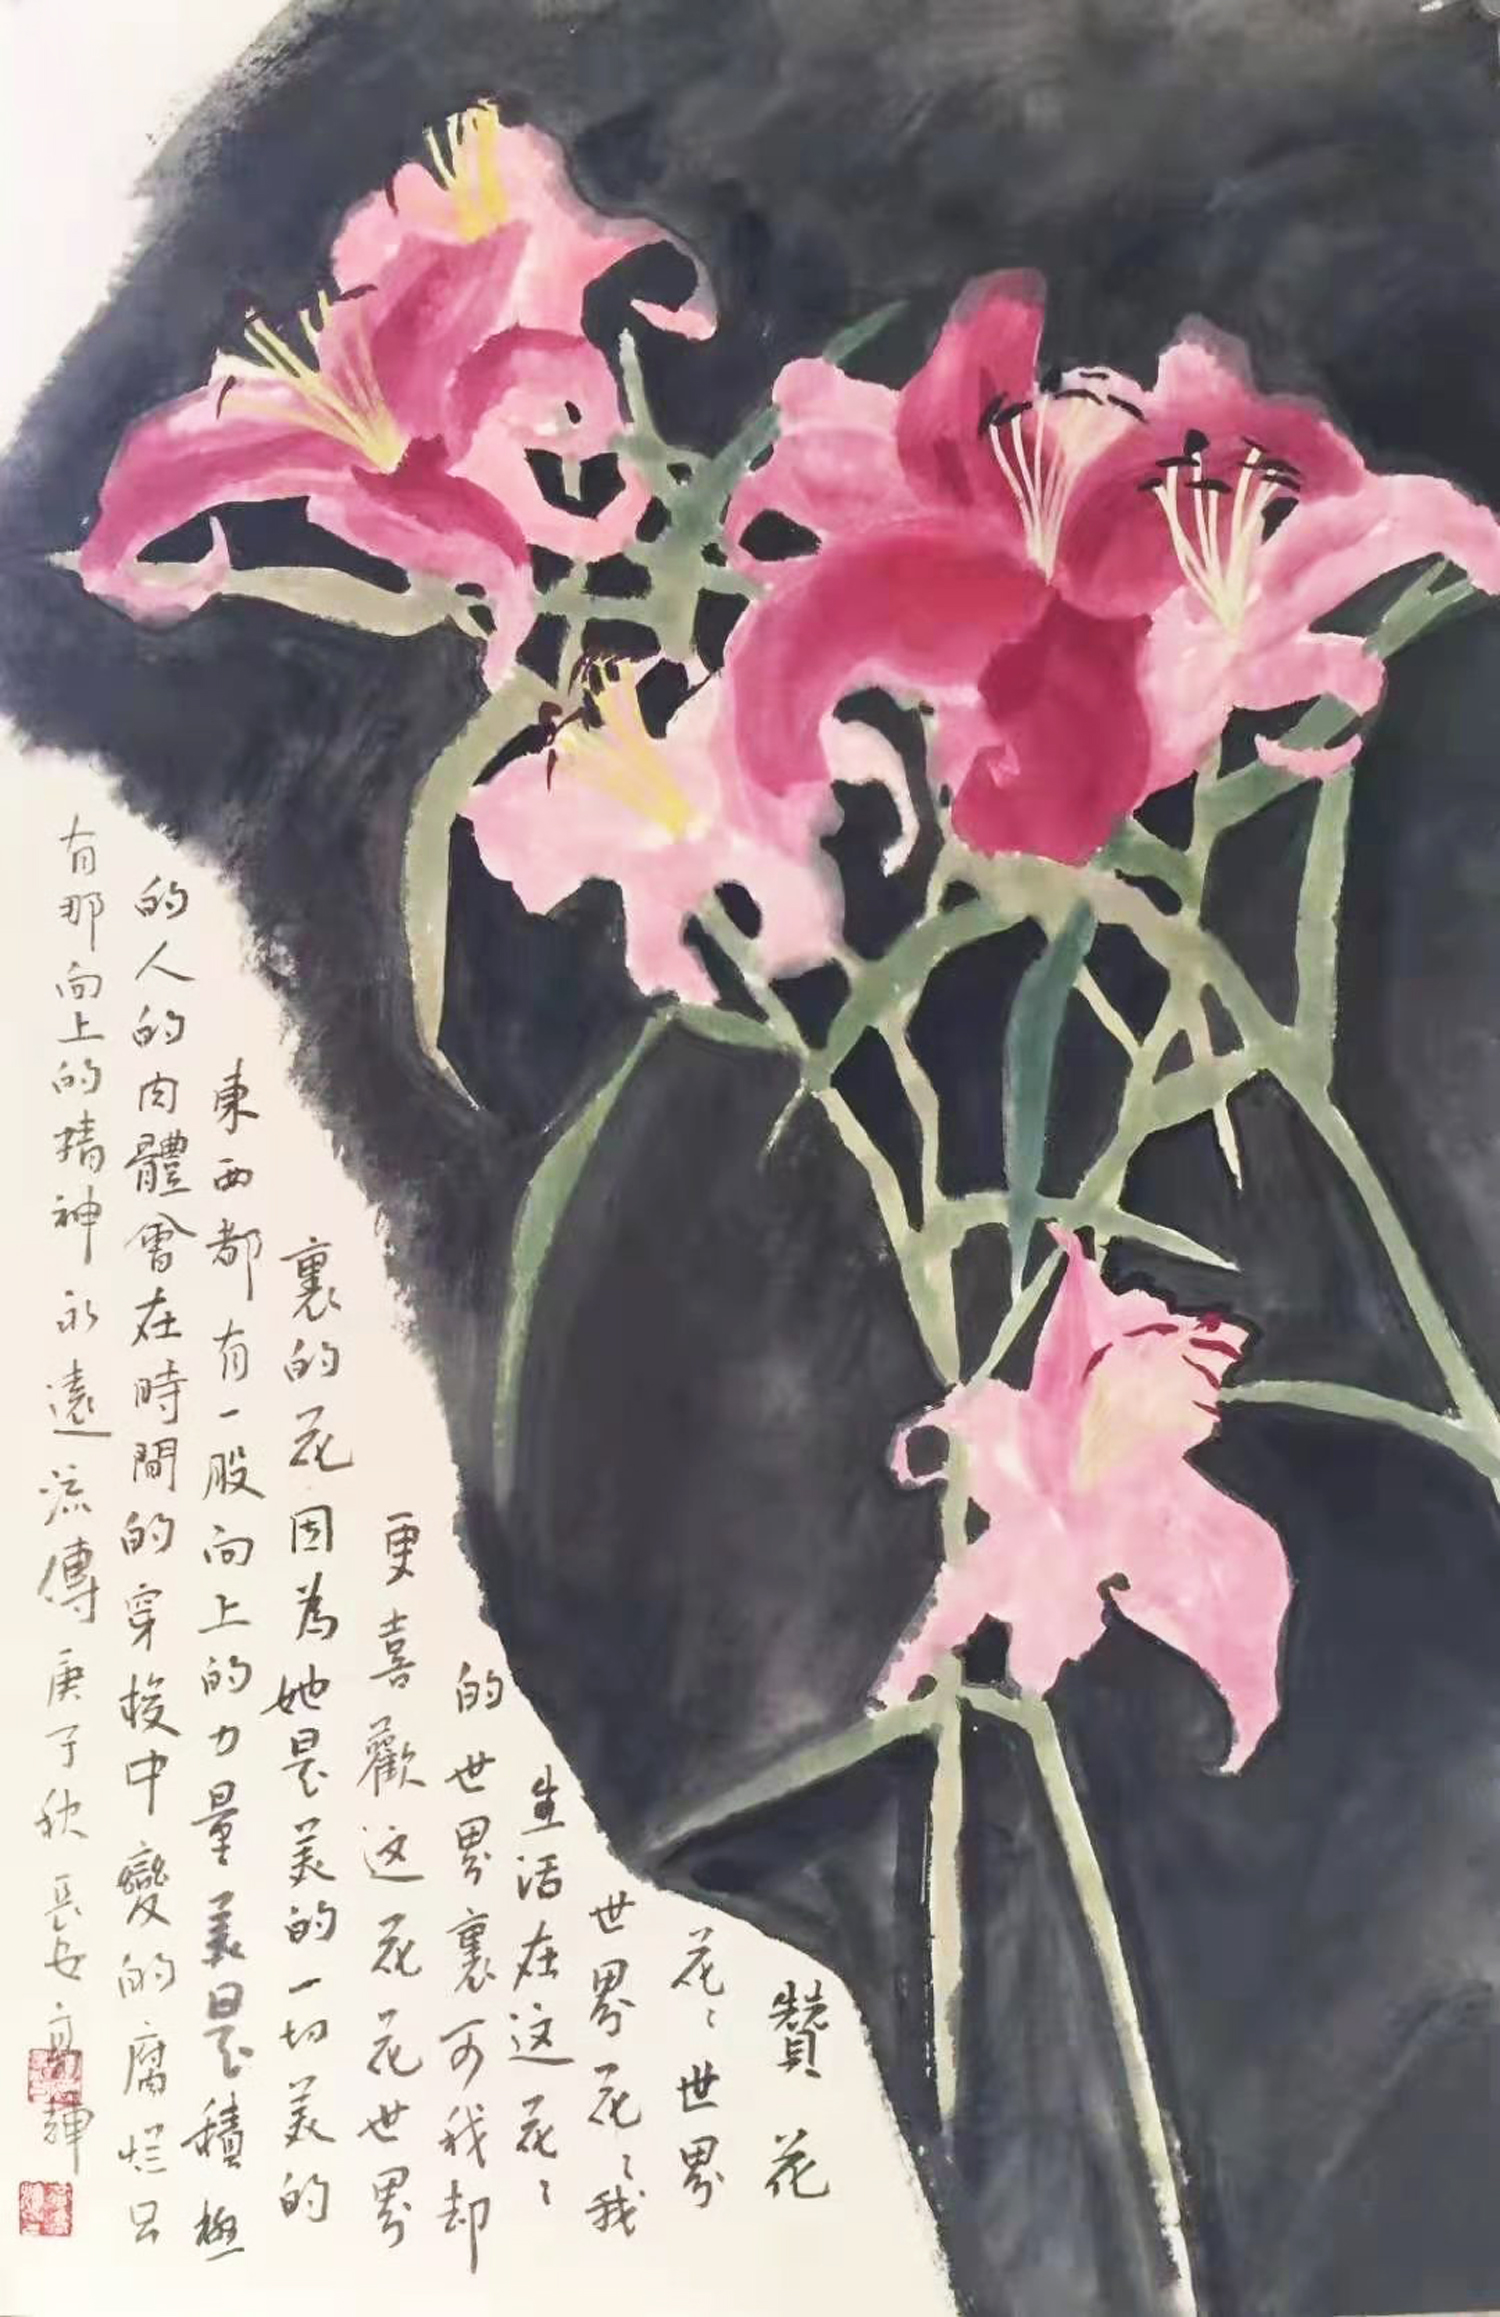 贊花
花〻世界
世界花〻我
生活在这花〻
的世界裏可我却
更喜歡这花花世界
裏的花因為她是美的一切美的
東西都有一股向上的力量美是積極
的人的肉體會在時間的穿梭中變的腐烂只
有那向上的精神永遠流傳庚子秋長安高輝